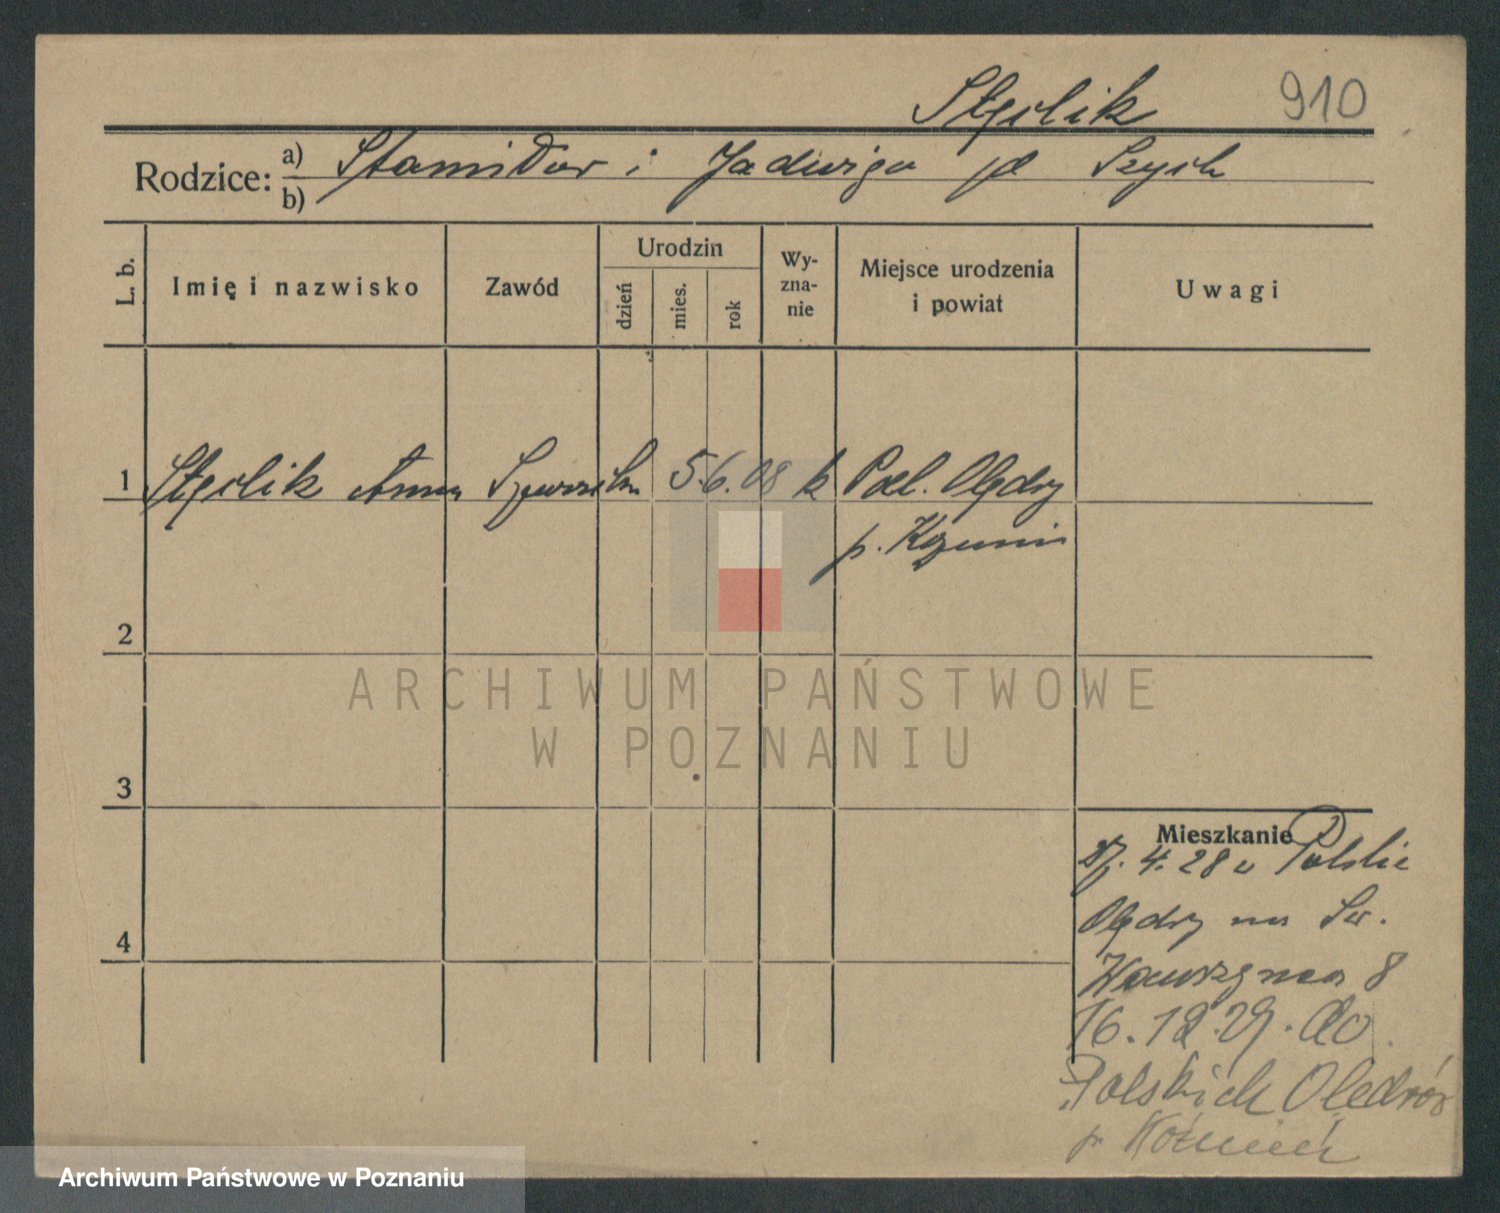 Stęclik 910
Rodzice: a) Stanisław i Jadwiga
b)
L. b.
Imię i nazwisko
Zawód
Urodzin
dzień
mies.
rok
Wy-
zna-
nie
Miejsce urodzenia
i powiat
Uwagi
1 Stęclik Anna 5. 6. 08 k Pol. Olędry
p. Kozmin
2
3
4
ARCHIWUM PAŃSTWOWE
W POZNANIU
Mieszkanie
27. 4. 28 z Polskie
Olędry na Św.
Wawrzyńca 8
16. 12. 29. do
Polskich Olędrów
p. Koźmin
Archiwum Państwowe w Poznaniu